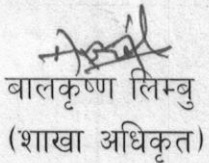 बालकृष्ण लिम्बु
(शाखा अधिकृत)